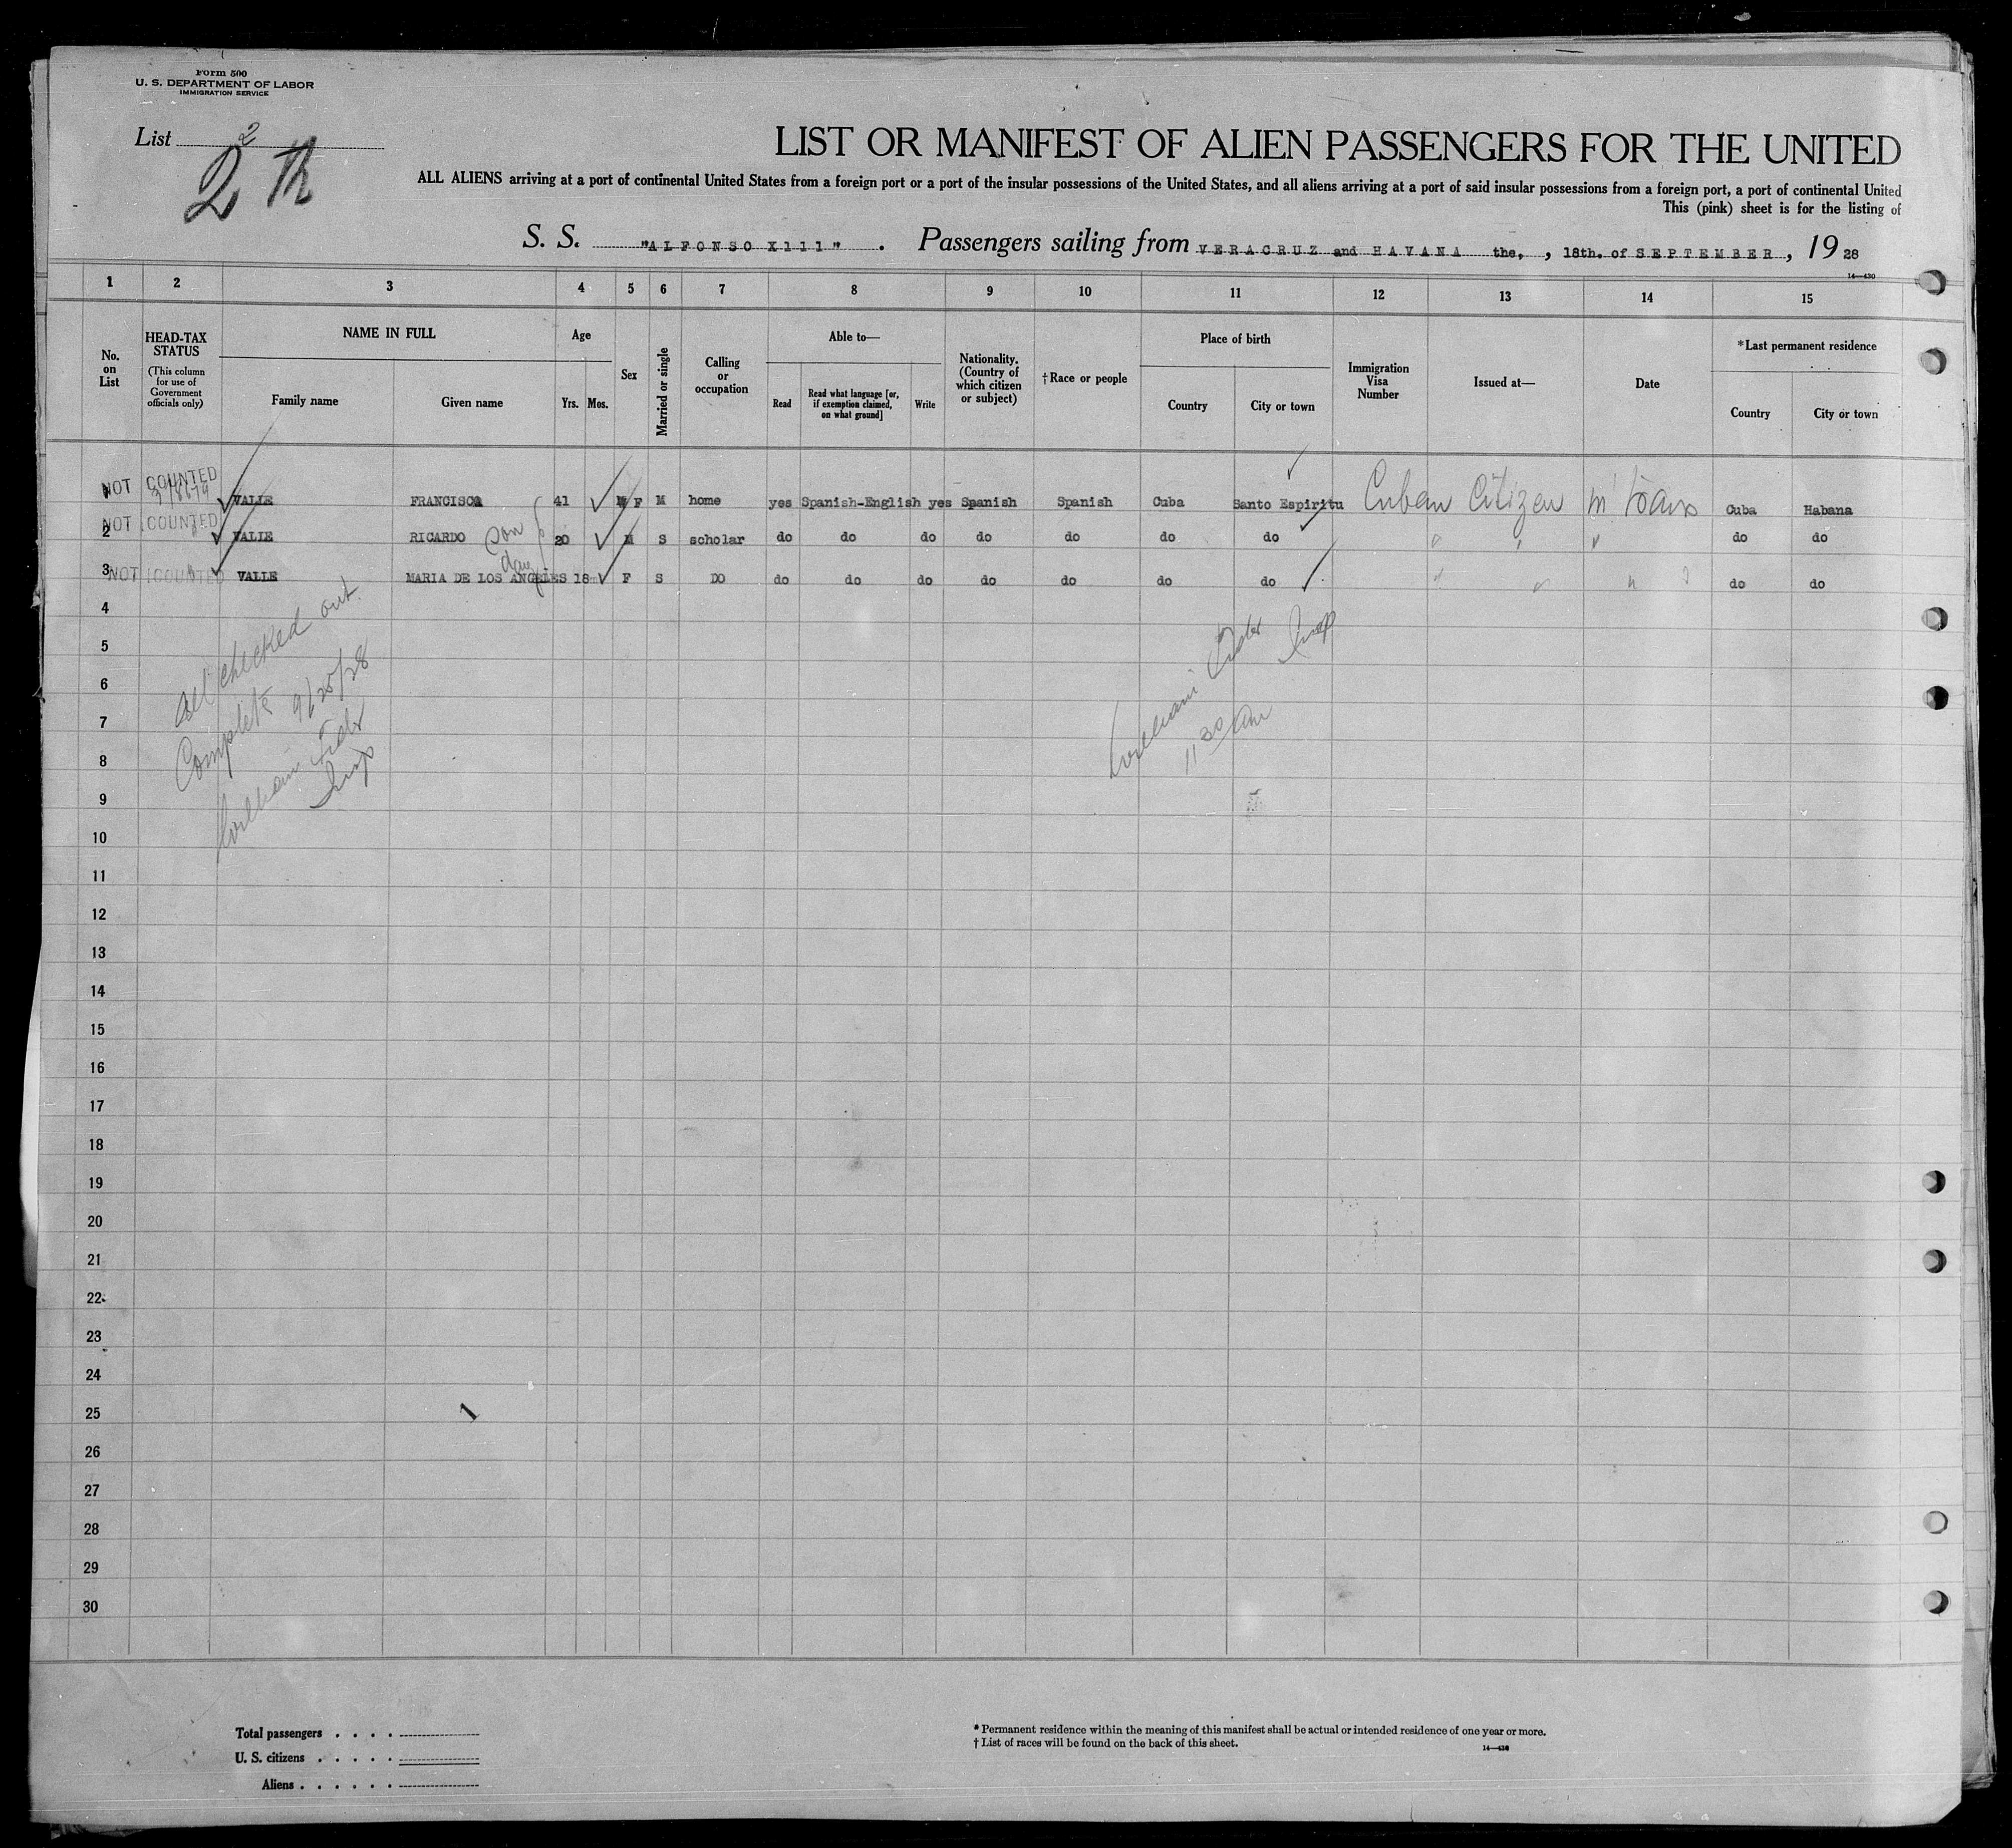 Form 500
U. S. DEPARTMENT OF LABOR
IMMIGRATION SERVICE
List 2
2 Th
LIST OR MANIFEST OF ALIEN PASSENGERS FOR THE UNITED
ALL ALIENS arriving at a port of continental United States from a foreign port or a port of the insular possessions of the United States, and all aliens arriving at a port of said insular possessions from a foreign port, a port of continental United
This (pink) sheet is for the listing of
S. S. "ALFONSO X111" . Passengers sailing from VERACRUZ and HAVANA the, , 18th. of SEPTEMBER , 1928
14—430
1 2 3 4 5 6 7 8 9 10 11 12 13 14 15
No. on List
HEAD-TAX STATUS (This column for use of Government officials only)
NAME IN FULL
Family name
Given name
Age
Yrs. Mos.
Sex
Married or single
Calling or occupation
Able to—
Read
Read what language [or, if exemption claimed, on what ground]
Write
Nationality. (Country of which citizen or subject)
†Race or people
Place of birth
Country
City or town
Immigration Visa Number
Issued at—
Date
*Last permanent residence
Country
City or town
NOT COUNTED VALLE FRANCISCA 41 M F M home yes Spanish-English yes Spanish Spanish Cuba Santo Espiritu Cuban Citizen in trans Cuba Habana
2 NOT COUNTED VALLE RICARDO son 20 M S scholar do do do do do do do " " " do do
3 NOT COUNTED VALLE MARIA DE LOS ANGELES dau 18 F S DO do do do do do do do " " " do do
4
5
6
7
8
9
10
11
12
13
14
15
16
17
18
19
20
21
22
23
24
25
26
27
28
29
30
All checked out.
Complete 9/20/28
William
Insp
William
Insp
11 30 Am
1
Total passengers . . . .
U. S. citizens . . . . .
Aliens . . . . . .
* Permanent residence within the meaning of this manifest shall be actual or intended residence of one year or more.
† List of races will be found on the back of this sheet.
14—430